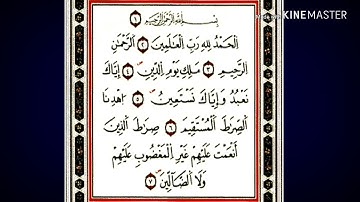 Made with KINEMASTER
بِسْمِ اللَّهِ الرَّحْمَٰنِ الرَّحِيمِ ١
الْحَمْدُ لِلَّهِ رَبِّ الْعَالَمِينَ ٢ الرَّحْمَٰنِ
الرَّحِيمِ ٣ مَالِكِ يَوْمِ الدِّينِ ٤ إِيَّاكَ
نَعْبُدُ وَإِيَّاكَ نَسْتَعِينُ ٥ اهْدِنَا
الصِّرَاطَ الْمُسْتَقِيمَ ٦ صِرَاطَ الَّذِينَ
أَنْعَمْتَ عَلَيْهِمْ غَيْرِ الْمَغْضُوبِ عَلَيْهِمْ
وَلَا الضَّالِّينَ ٧